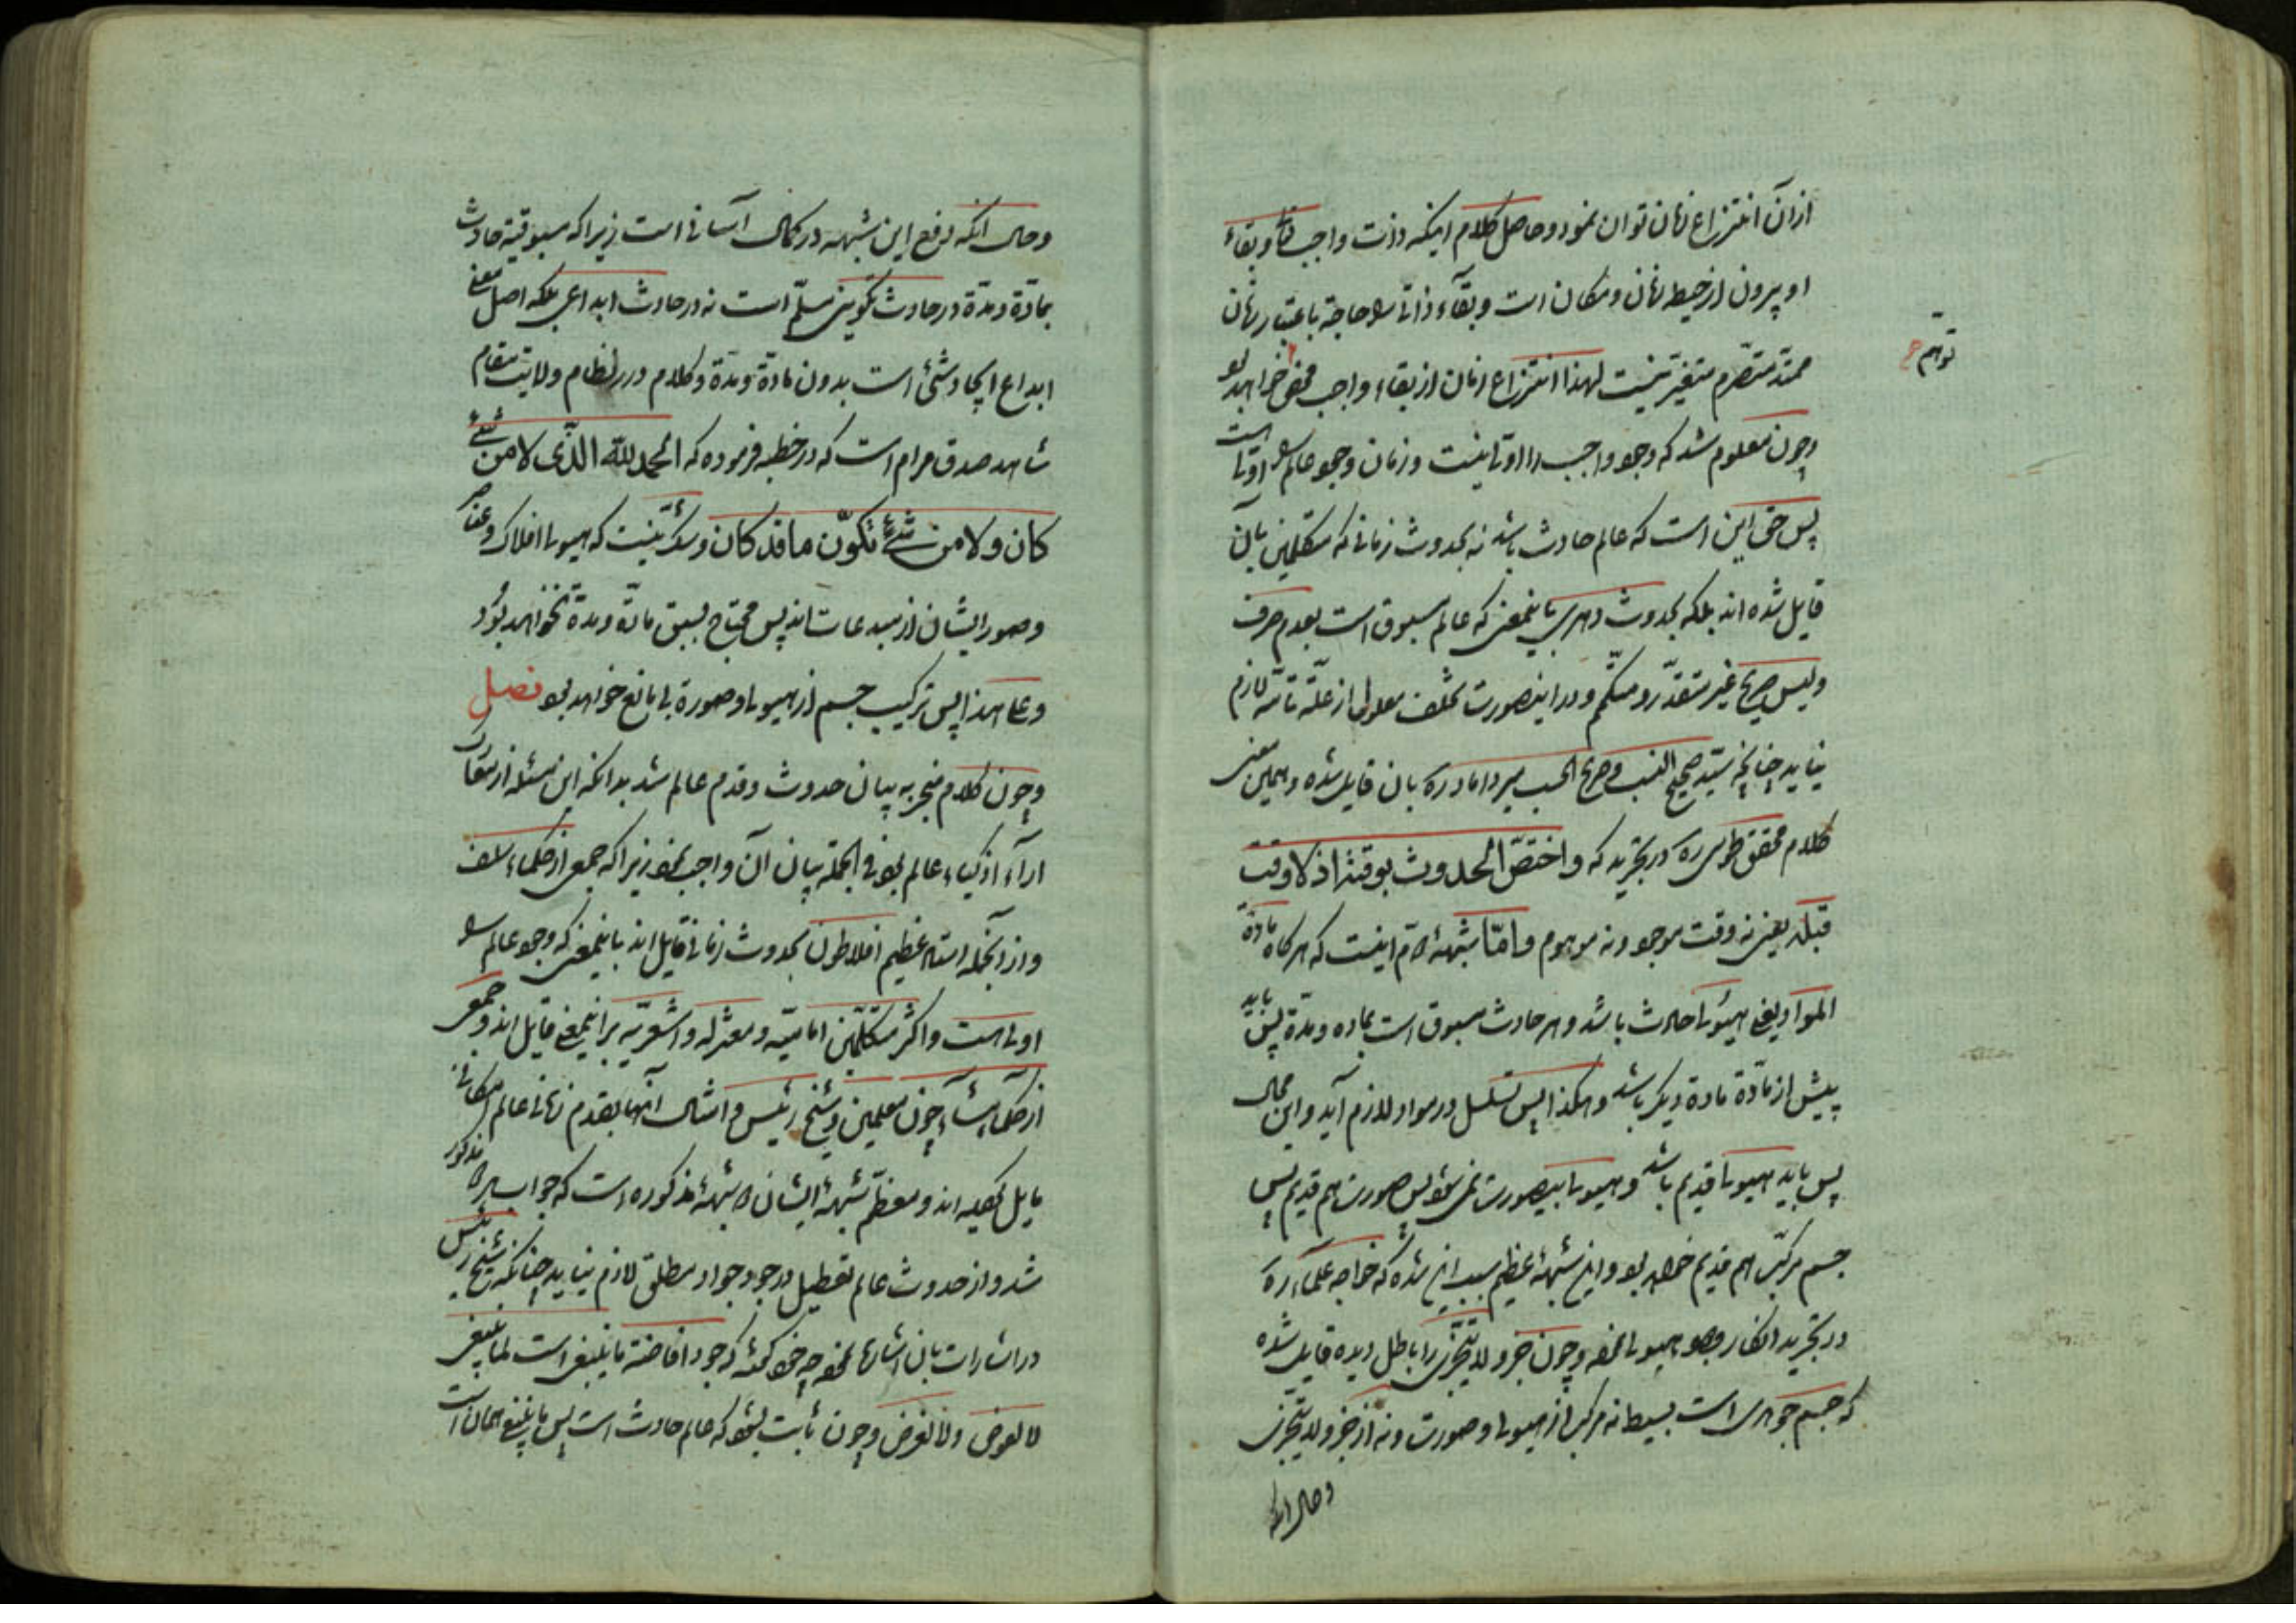 از آن انتزاع زمان توان نمود و حاصل کلام اینکه ذات واجب تعالی و بقاء
او بیرون از حیطه زمان و مکان است و بقاء ذاتی را حاجة باعتبار زمان
توهم
ممتد متصرم متغیر نیست لهذا انتزاع زمان از بقاء واجب محض خواهد بود
و چون معلوم شد که وجود واجب را اولیة نیست و زمان وجود عالم را اولی است
پس حق این است که عالم حادث باشد نه بحدوث زمانی که متکلمین بآن
قایل شده اند بلکه بحدوث دهری باینمعنی که عالم مسبوق است بعدم صرف
و لیس صریح غیر متقدر و متکمم و در اینصورت تخلف معلول از علّة تامّه لازم
نیاید چنانچه سیّد صحیح النسب و صریح الحسب میر داماد ره بآن قایل شده و همین معنی
کلام محقق طوسی ره در تجرید که واختصّ الحدوث بوقته اذ لا وقت
قبله یعنی نه وقت موجود و نه موهوم و امّا شبهۀ قدم اینست که هرگاه مادة
المواد یعنی هیولی حادث باشد و هر حادث مسبوق است بماده و مدة پس باید
پیش از مادّة مادة دیگر باشد و هکذا پس تسلسل در مواد لازم آید و این محال
پس باید هیولی قدیم باشد و هیولی بیصورت نمی شود پس صورت هم قدیم پس
جسم مرکّب هم قدیم خواهد بود و این شبهۀ عظیم سبب این شده که خواجه علماء ره
در تجرید انکار وجود هیولی نموده و چون جزو لا یتجزی را باطل دیده قایل شده
که جسم جوهری است بسیط نه مرکب از هیولی و صورت و نه از جزو لا یتجزی
و حال انکه
و حال انکه دفع این شبهه در کمال آسانی است زیرا که مسبوقیة حادث
بمادّة و مدّة در حادث تکوینی مسلّم است نه در حادث ابداعی بلکه اصل معنی
ابداع ایجاد شئ است بدون مادة و مدة و کلام درر نظام ولایت مقام
شاهد صدق مرام است که در خطبه فرموده که الحمد لله الذی لا من شئ
کان و لا من شئ تکوّن ما قد کان و شک نیست که هیولی افلاک و عناصر
و صور ایشان از مبدعات اند پس محتاج بسبق مادّة و مدة نخواهد بود
و علی هذا پس ترکیب جسم از هیولی و صورة بی مانع خواهد بود فصل
و چون کلام منجر به بیان حدوث و قدم عالم شد بدانکه این مسئله از معارک
ارآء اذکیاء عالم بود فی الجمله بیان آن واجب نمود زیرا که جمعی از حکماء سلف
و از آنجمله استاد عظیم افلاطون بحدوث زمانی قایل اند باینمعنی که وجود عالم را
اولی است و اکثر متکلّمین امامیّه و معتزله و اشعریّه بر اینمعنی قایل اند و جمعی
از حکماء مشّاء چون معلمین و شیخ رئیس و امثال آنها بقدم زمانی عالم امکانی
قایل گردیده اند و معظم شبهۀ ایشان شبهۀ مذکوره است که جواب مذکور
شد و از حدوث عالم تعطیل در جود جواد مطلق لازم نیاید چنانکه شیخ رئیس
در اشارات بآن اشاره نموده چه خود گفته که جود افاضة ما ینبغی است لما ینبغی
لا لعوض و لا لغرض و چون ثابت شود که عالم حادث است پس ما ینبغی همان است